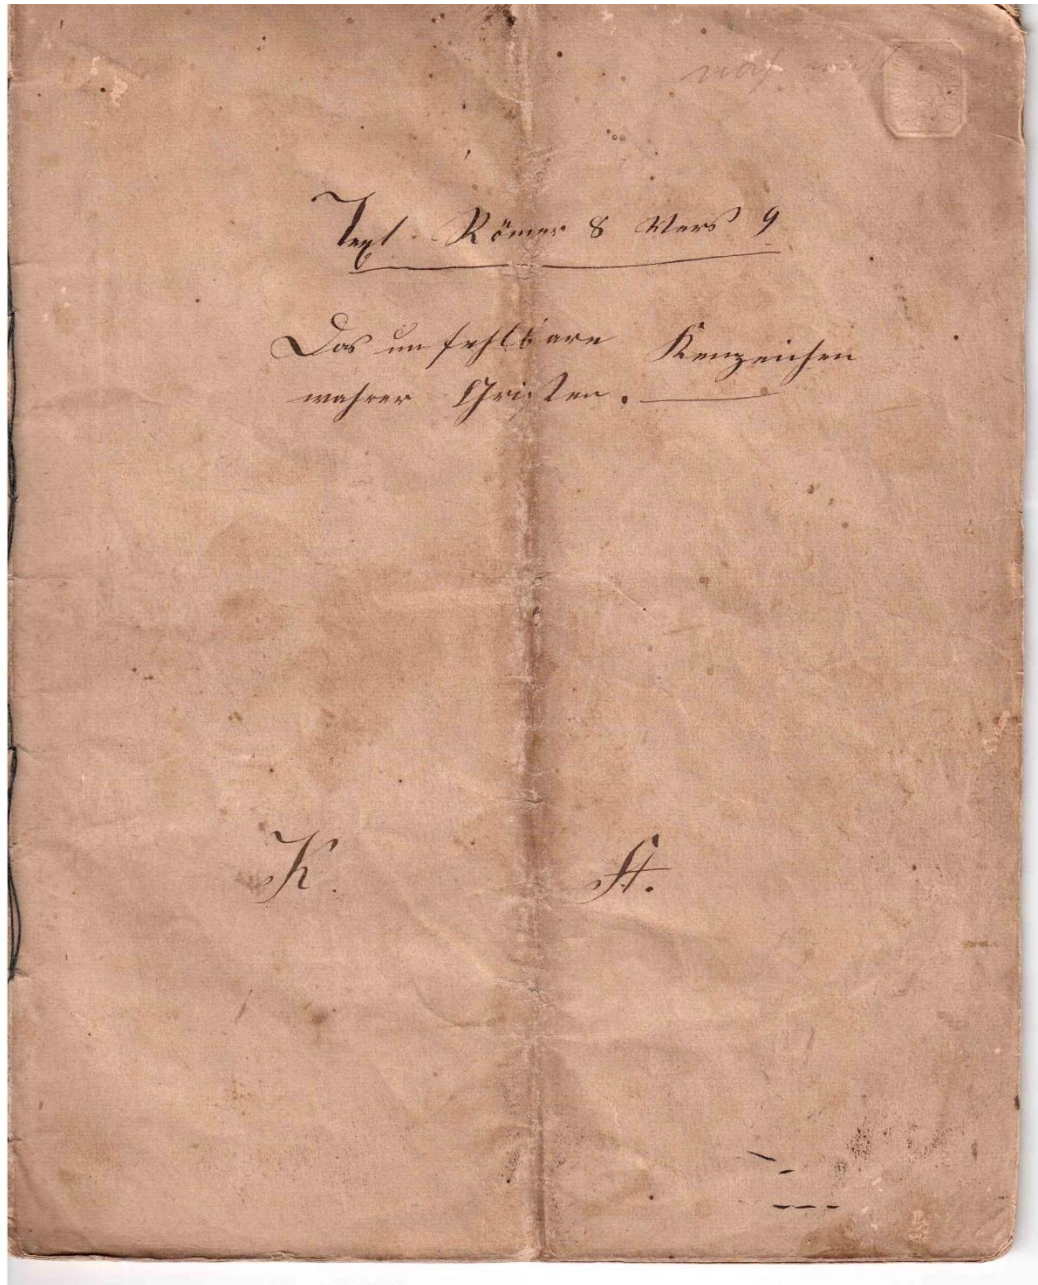 Text Römer 8 Vers 9
Das unfehlbare Kenzeichen
wahrer Christen.
K. St.